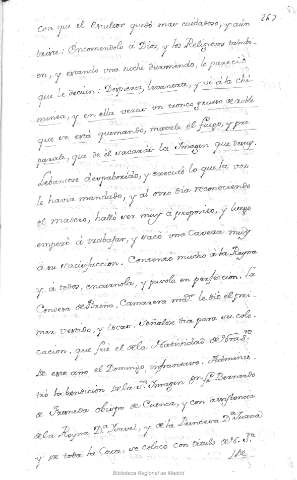 167
con que el Escultor quedó mas cuidadoso, y aun
triste: Encomendolo á Dios, y los Religiosos tambi-
en, y estando una noche durmiendo, le pareció
que le decian: Despierta, levantate, y vé á la chi-
menea, y en ella veras un tronco grueso de roble
que se está quemando, matale el fuego, y pre-
paralo, que de él sacarás la Imagen que
Levantose despavorido, y executó lo que la voz
le havia mandado, y al otro dia reconociendo
el madero, halló ser muy á proposito, y luego
empezó á trabajar, y sacó una Cavera muy
á su satisfaccion. Contentó mucho á la Reyna
y á todos, encarnola, y pusola en perfeccion. La
Condesa de Ureña, Camarera mayor le dió el pri-
mer vestido, y tocas. Señalose dia para su colo-
cacion, que fué el de la Natividad de Ntra. Sra.
de este año el Domingo infraoctavo. Administ-
tró la bendicion de la Sta. Imagen Dn. Fr. Bernardo
de Fresneda obispo de Cuenca, y con asistencia
de la Reyna Da. Isavel, y de la Princesa Da. Juana
y de toda la Casa, se colocó con titulo de N. Sa.
de
Biblioteca Regional de Madrid